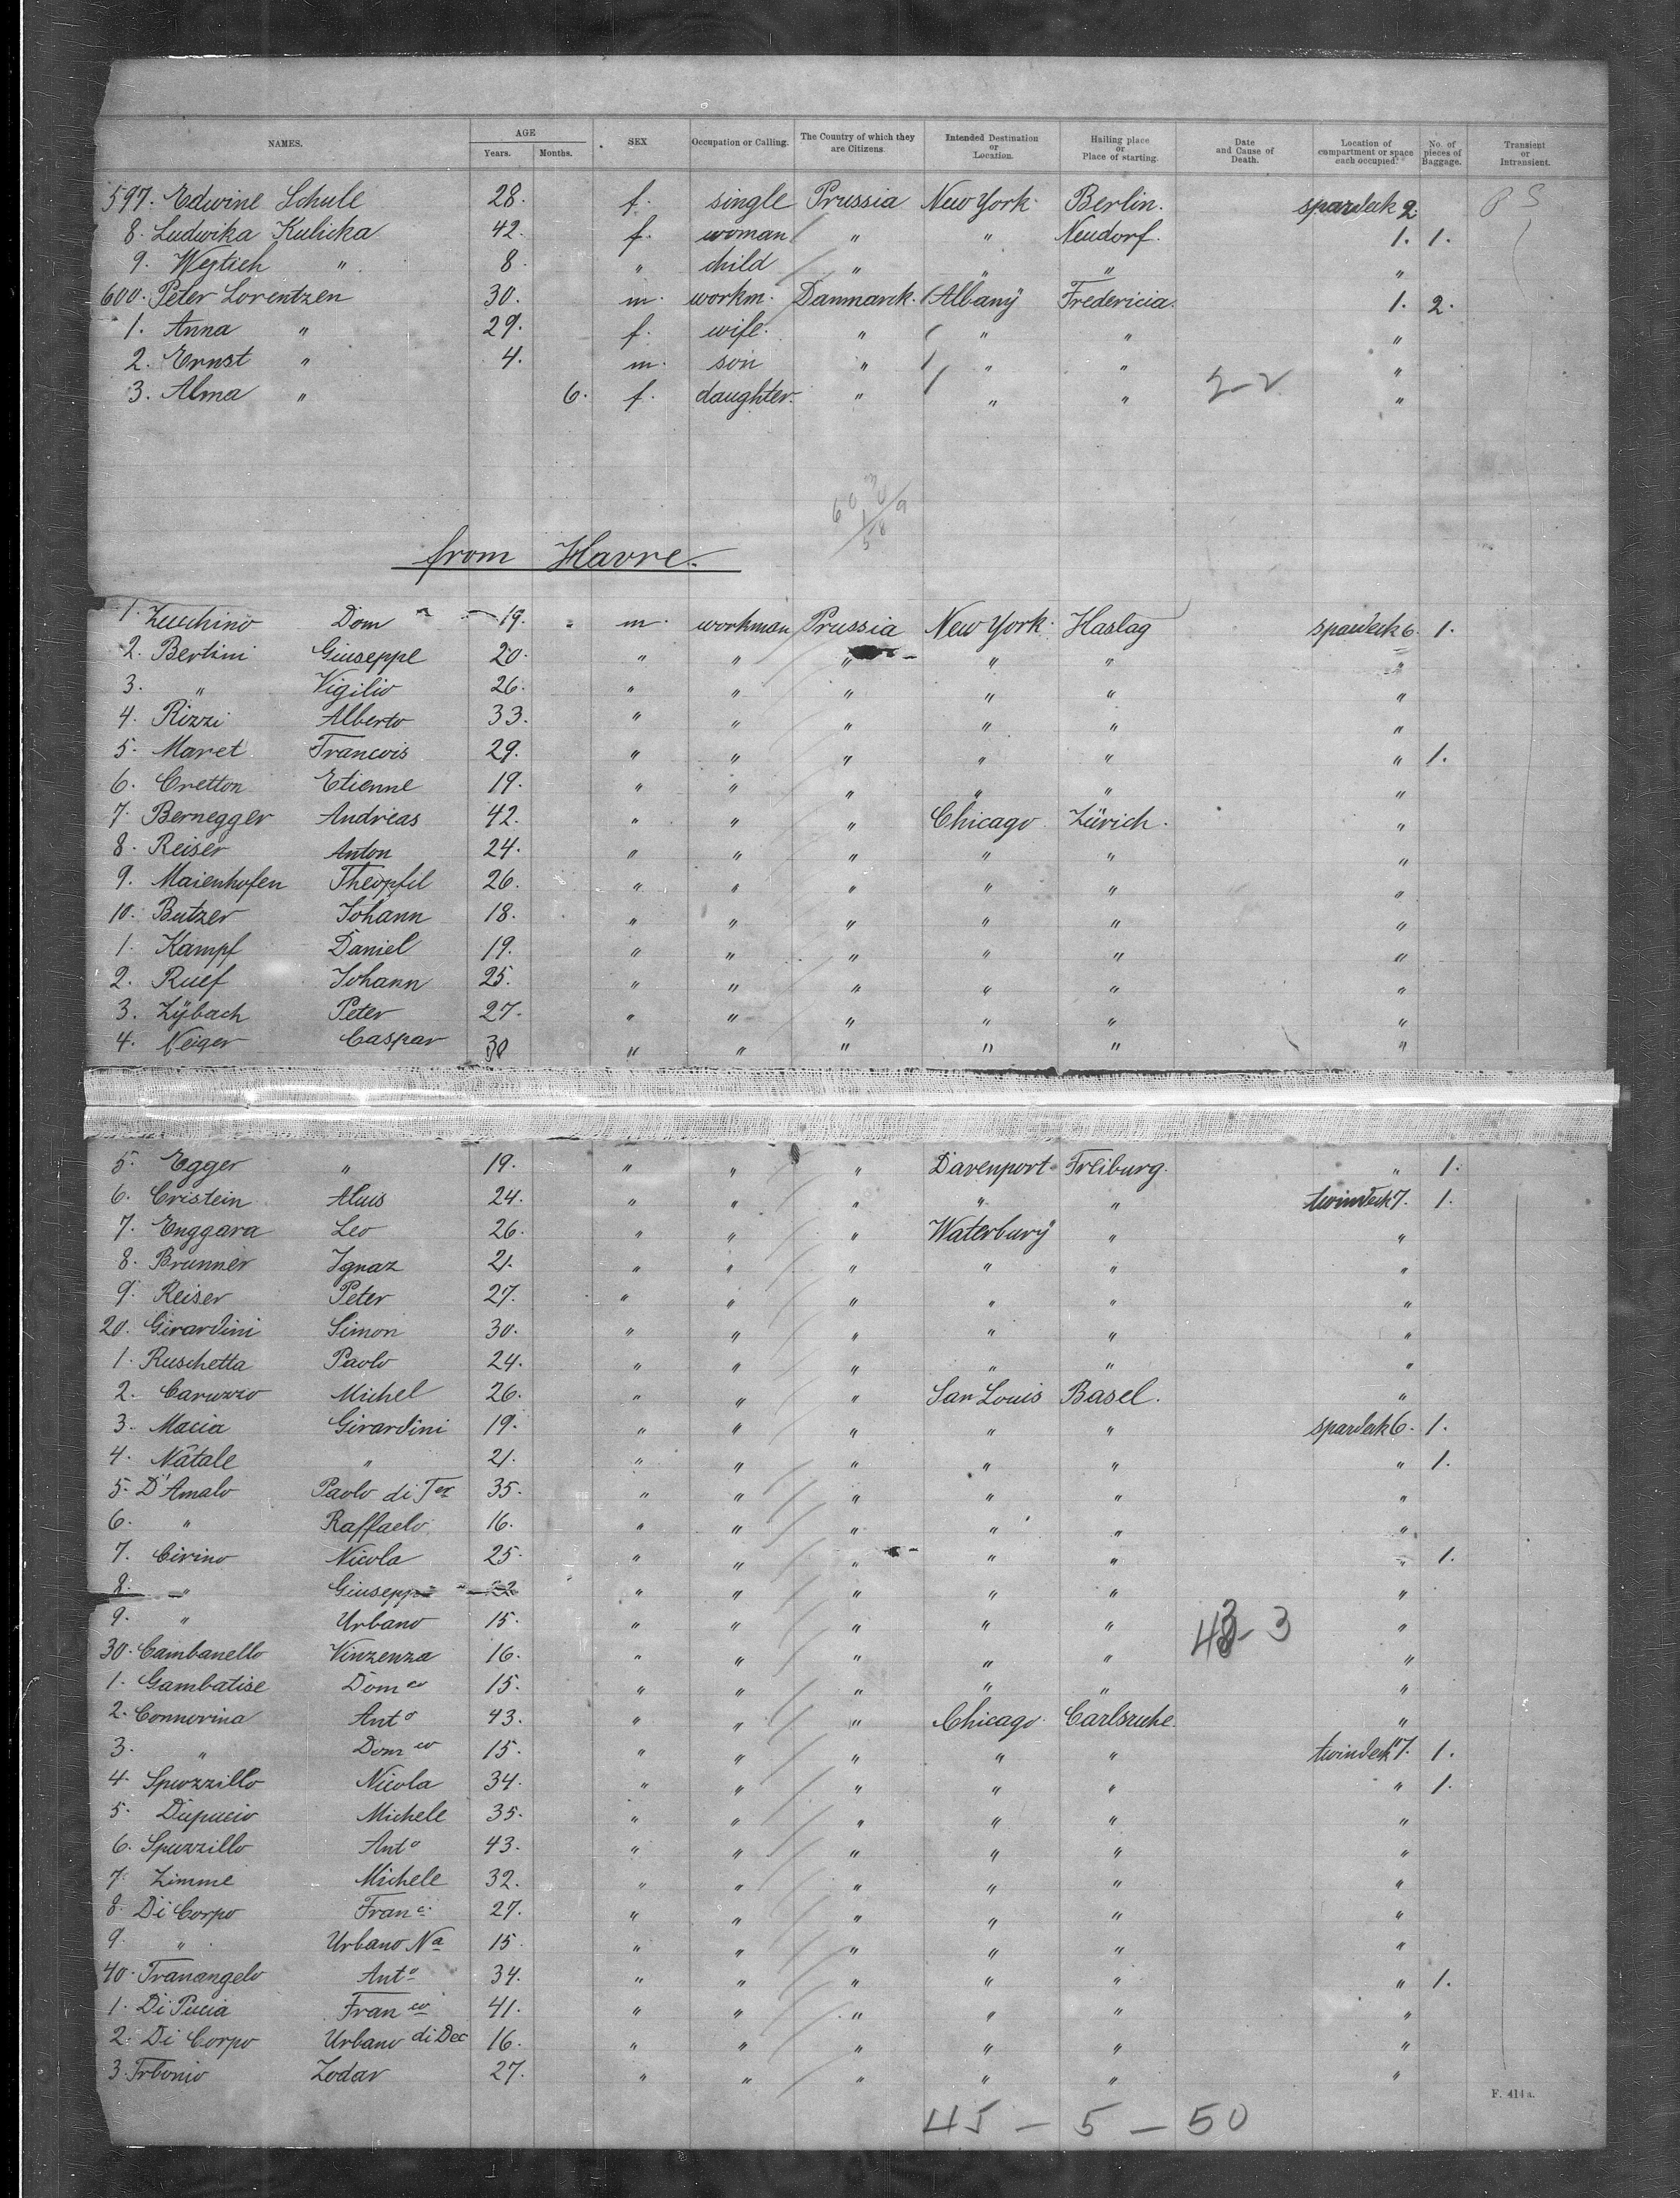 NAMES. AGE Years. Months. SEX Occupation or Calling. The Country of which they are Citizens. Intended Destination or Location. Hailing place or Place of starting. Date and Cause of Death. Location of compartment or space each occupied. No. of pieces of Baggage. Transient or Intransient.
597. Edwine Schule 28. f. single Prussia New York. Berlin. spardeck 2.
8. Ludwika Kulicka 42. f. woman " " Neudorf. 1. 1.
9. Wojtsch " 8. " child " " " "
600. Peter Lorentzen 30. m. workm. Danmark. Albany Fredericia. 1. 2.
1. Anna " 29. f. wife. " " " "
2. Ernst " 4. m. son " " " "
3. Alma " 6. f. daughter. " " " "
from Havre.
1. Zucchino Dom 19. m. workman Prussia New York. Haslag spardeck 6. 1.
2. Bertini Giuseppe 20. " " " " " "
3. " Vigilio 26. " " " " " "
4. Rizzi Alberto 33. " " " " " "
5. Maret Francois 29. " " " " " " 1.
6. Cretton Etienne 19. " " " " " "
7. Bernegger Andreas 42. " " " Chicago. Zürich. "
8. Reiser Anton 24. " " " " " "
9. Maienhofen Theopfil 26. " " " " " "
10. Butzer Johann 18. " " " " " "
1. Kampf Daniel 19. " " " " " "
2. Ruef Johann 25. " " " " " "
3. Zÿbach Peter 27. " " " " " "
4. Neiger Caspar 30 " " " " " "
5. Egger " 19. " " " Davenport Freiburg. " 1.
6. Cristein Aluis 24. " " " " " twindeck 7. 1.
7. Enggara Leo 26. " " " Waterburÿ " "
8. Brunner Ignaz 21. " " " " " "
9. Reiser Peter 27. " " " " " "
20. Girardini Simon 30. " " " " " "
1. Ruschetta Paolo 24. " " " " " "
2. Caruzzo Michel 26. " " " San Louis Basel. "
3. Macia Girardini 19. " " " " " spardeck 6. 1.
4. Natale " 21. " " " " " " 1.
5. D'Amalo Paolo di 35. " " " " " "
6. " Raffaelo 16. " " " " " "
7. Cirino Nicola 25. " " " " " " 1.
8. " Giuseppe 22 " " " " " "
9. " Urbano 15. " " " " " "
30. Cambanello Vinzenza 16. " " " " " "
1. Gambatise Domco 15. " " " " " "
2. Connorina Anto 43. " " " Chicago. Carlsruhe. "
3. " Domco 15. " " " " " twindeck 7. 1.
4. Spuzzillo Nicola 34. " " " " " " 1.
5. Dupucio Michele 35. " " " " " "
6. Spuzzillo Anto 43. " " " " " "
7. Zimme Michele 32. " " " " " "
8. Di Corpo Franc. 27. " " " " " "
9. " Urbano Na 15. " " " " " "
40. Tranangelo Anto 34. " " " " " " 1.
1. Di Pucia Franco 41. " " " " " "
2. Di Corpo Urbano di Dec 16. " " " " " "
3. Trbonio Zodar 27. " " " " " "
F. 414a.
45 – 5 – 50